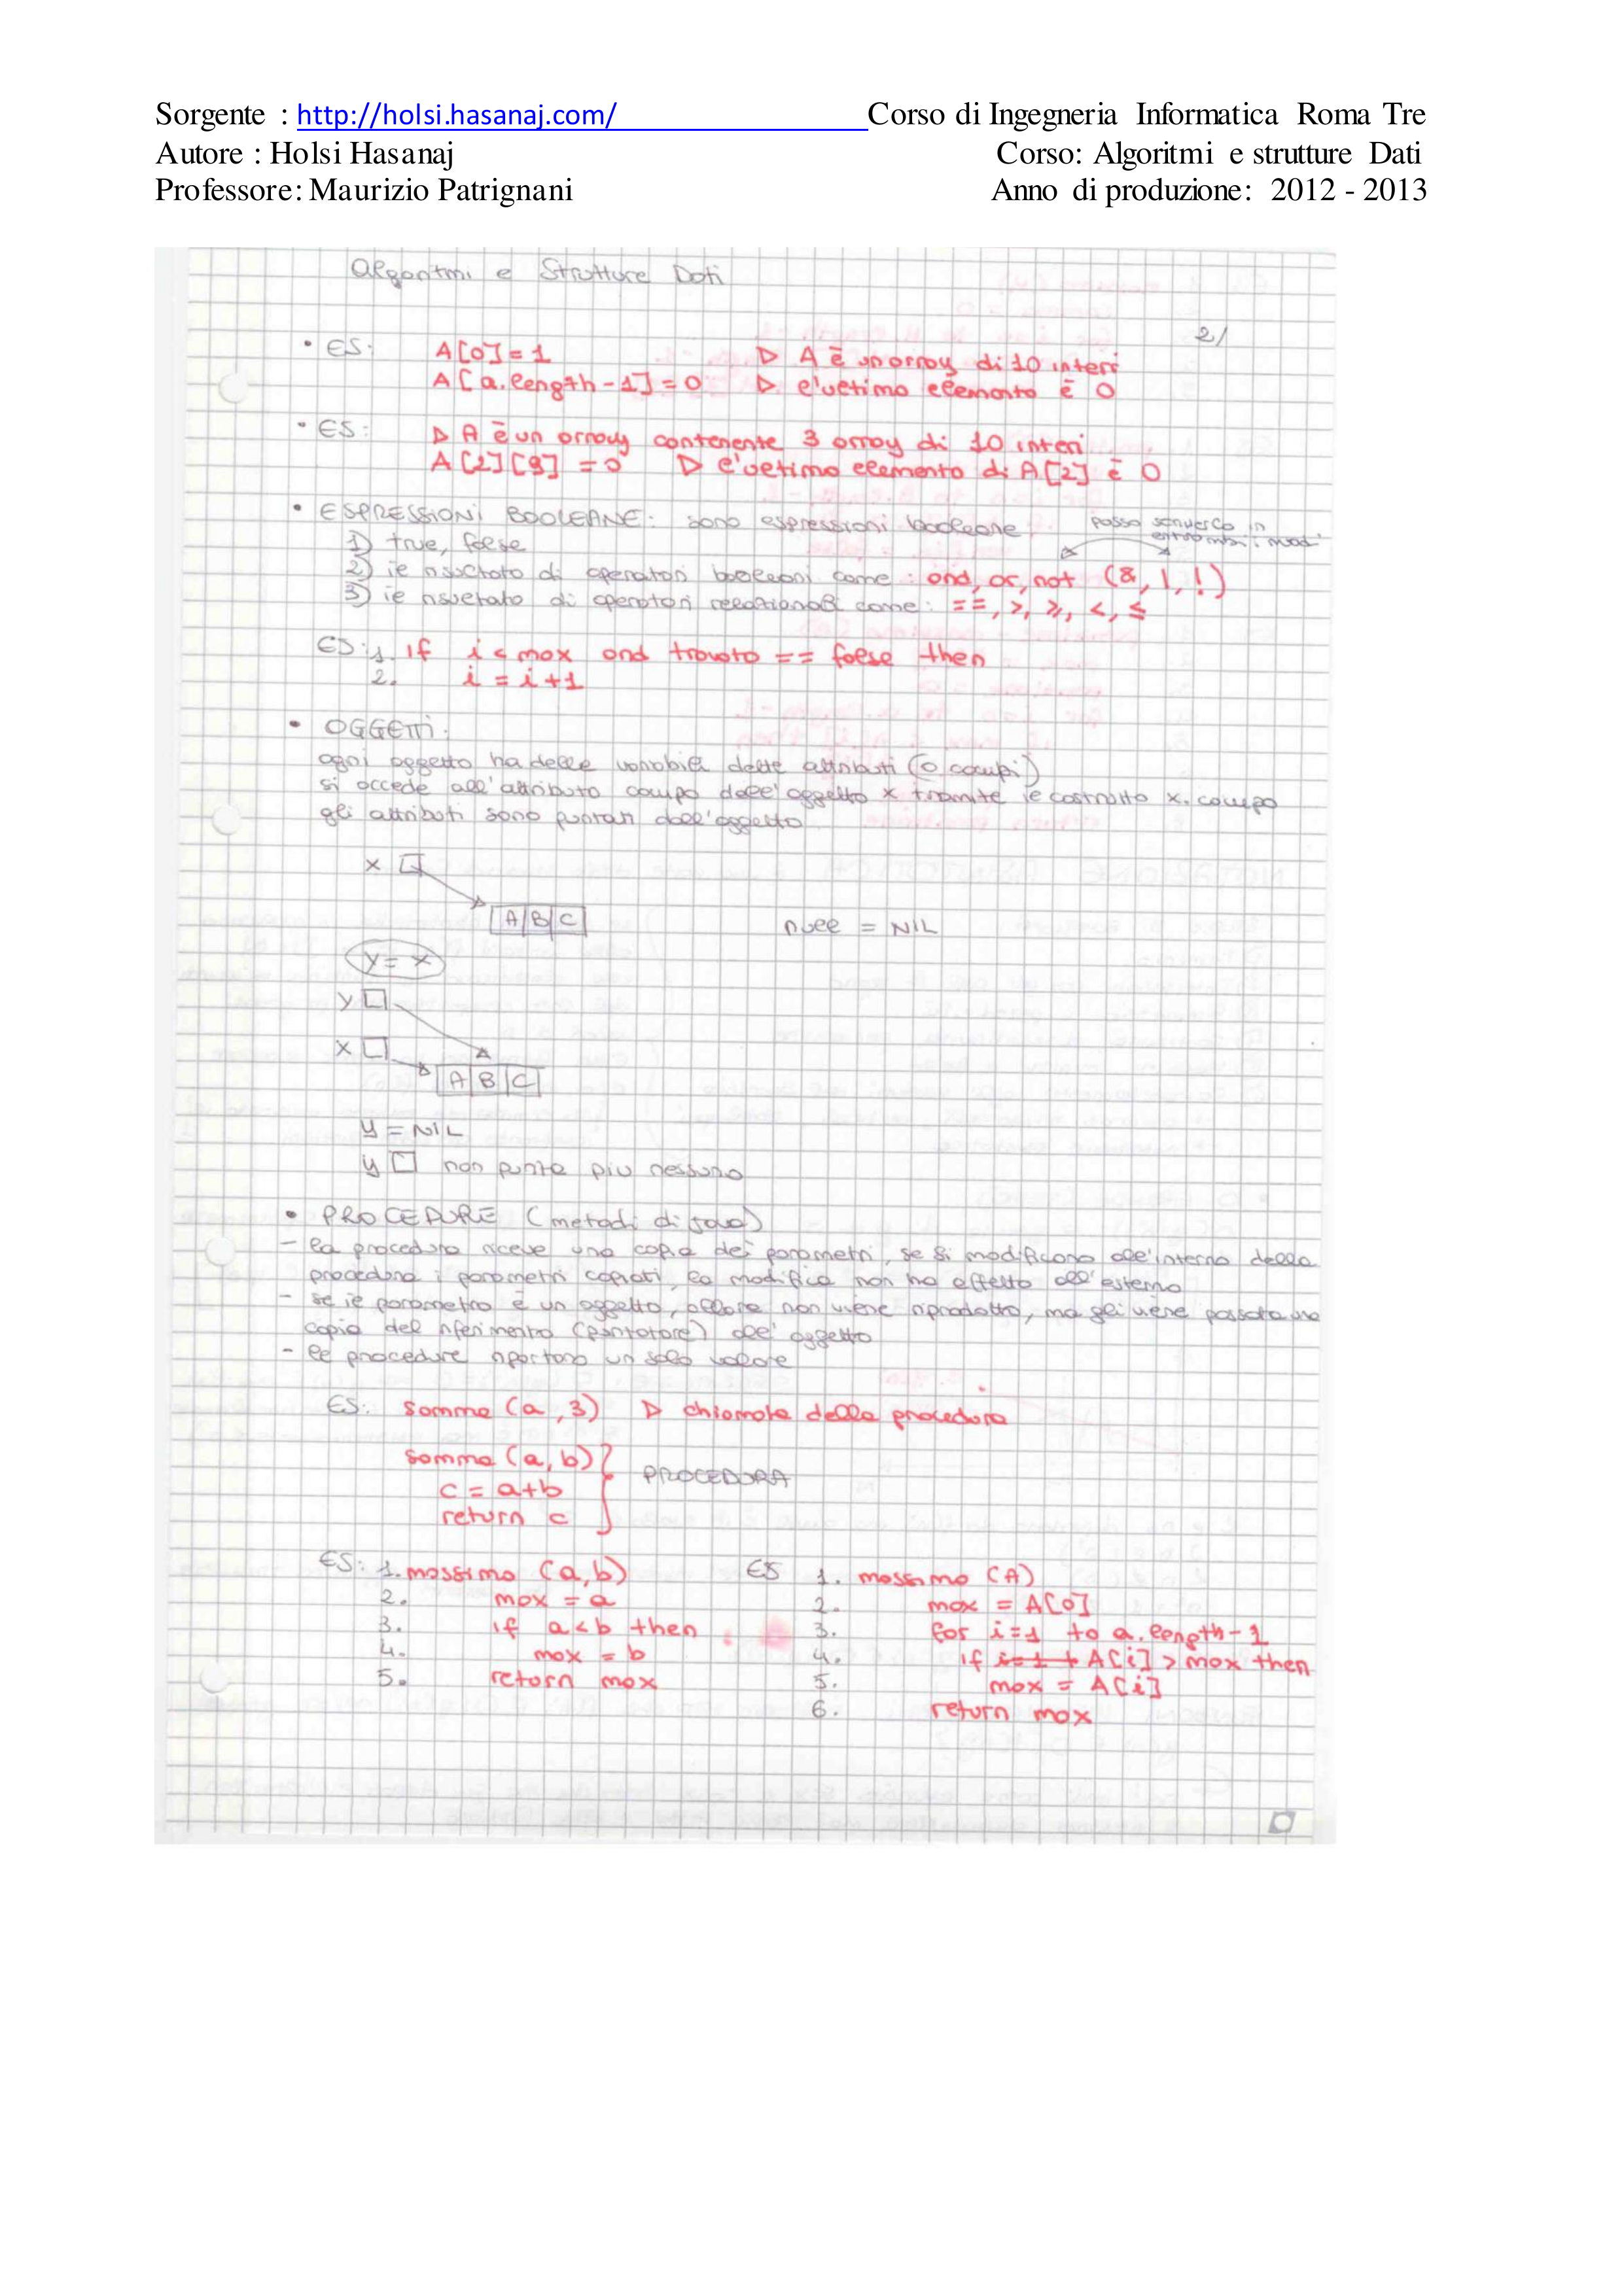 Sorgente : http://holsi.hasanaj.com/ Corso di Ingegneria Informatica Roma Tre
Autore : Holsi Hasanaj Corso: Algoritmi e strutture Dati
Professore: Maurizio Patrignani Anno di produzione: 2012 - 2013
Algoritmi e Strutture Dati
2/
• ES: A[0] = 1 ▷ A è un array di 10 interi
A[a.length-1] = 0 ▷ l'ultimo elemento è 0
• ES: ▷ A è un array contenente 3 array di 10 interi
A[2][9] = 0 ▷ l'ultimo elemento di A[2] è 0
• ESPRESSIONI BOOLEANE: sono espressioni booleane
posso scriverlo in
entrambi i modi
1) true, false
2) il risultato di operatori booleani come: and, or, not (&, |, !)
3) il risultato di operatori relazionali come: ==, >, ≥, <, ≤
ES: 1. if i < max and trovato == false then
2. i = i + 1
• OGGETTI:
ogni oggetto ha delle variabili dette attributi (o campi)
si accede all'attributo campo dell'oggetto x tramite il costrutto x.campo
gli attributi sono puntati dall'oggetto
x
A B C
null = NIL
y = x
y
x
A B C
y = NIL
y non punta più nessuno
• PROCEDURE (metodi di java)
- la procedura riceve una copia dei parametri, se si modificano all'interno della
procedura i parametri copiati, la modifica non ha effetto all'esterno
- se il parametro è un oggetto, allora non viene riprodotto, ma gli viene passata una
copia del riferimento (puntatore) all'oggetto
- le procedure riportano un solo valore
ES: somma (a, 3) ▷ chiamata della procedura
somma (a, b)
c = a+b PROCEDURA
return c
ES: 1. massimo (a, b)
2. max = a
3. if a < b then
4. max = b
5. return max
ES 1. massimo (A)
2. max = A[0]
3. for i=1 to a.length-1
4. if A[i] > max then
5. max = A[i]
6. return max